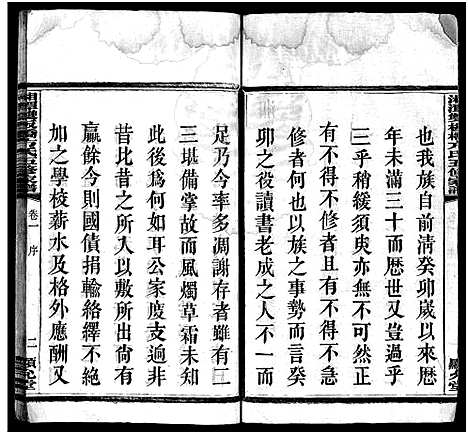 也我族自前清癸卯歲以來歷
年未滿三十而歷世又豈過乎
三乎稍緩須臾亦無不可然正
有不得不修者又有不得不急
修者何也以族之事勢而言癸
卯之役讀書老成之人不一而
足乃今率多凋謝存者雖有二
三堪備掌故而風燭草霜未知
此後為何如耳公家度支逾非
昔日所入之數以敷所出尚有
贏餘今則國債捐輸絡繹不絕
加之學校薪水及格外應酬又
卷一 序
二